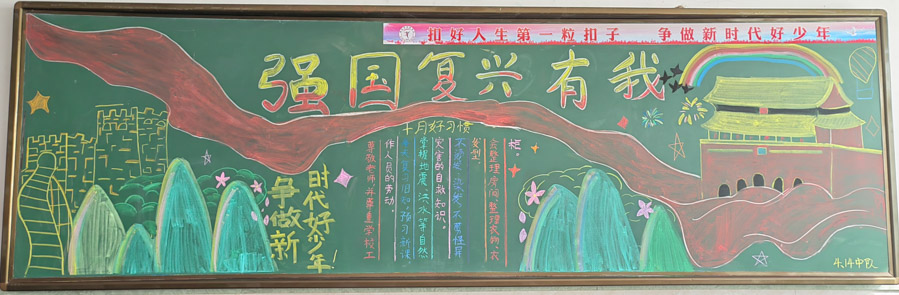 扣好人生第一粒扣子 争做新时代好少年
强国复兴有我
十月好习惯
柜。
会整理房间、整理衣物、衣
发型。
不烫发、染发、不剪怪异
灾害的自救知识。
掌握地震、洪水等自然
旧知,预习新课。
作人员的劳动。
尊敬老师并尊重学校工
争做新
时代好少年!
4.14中队